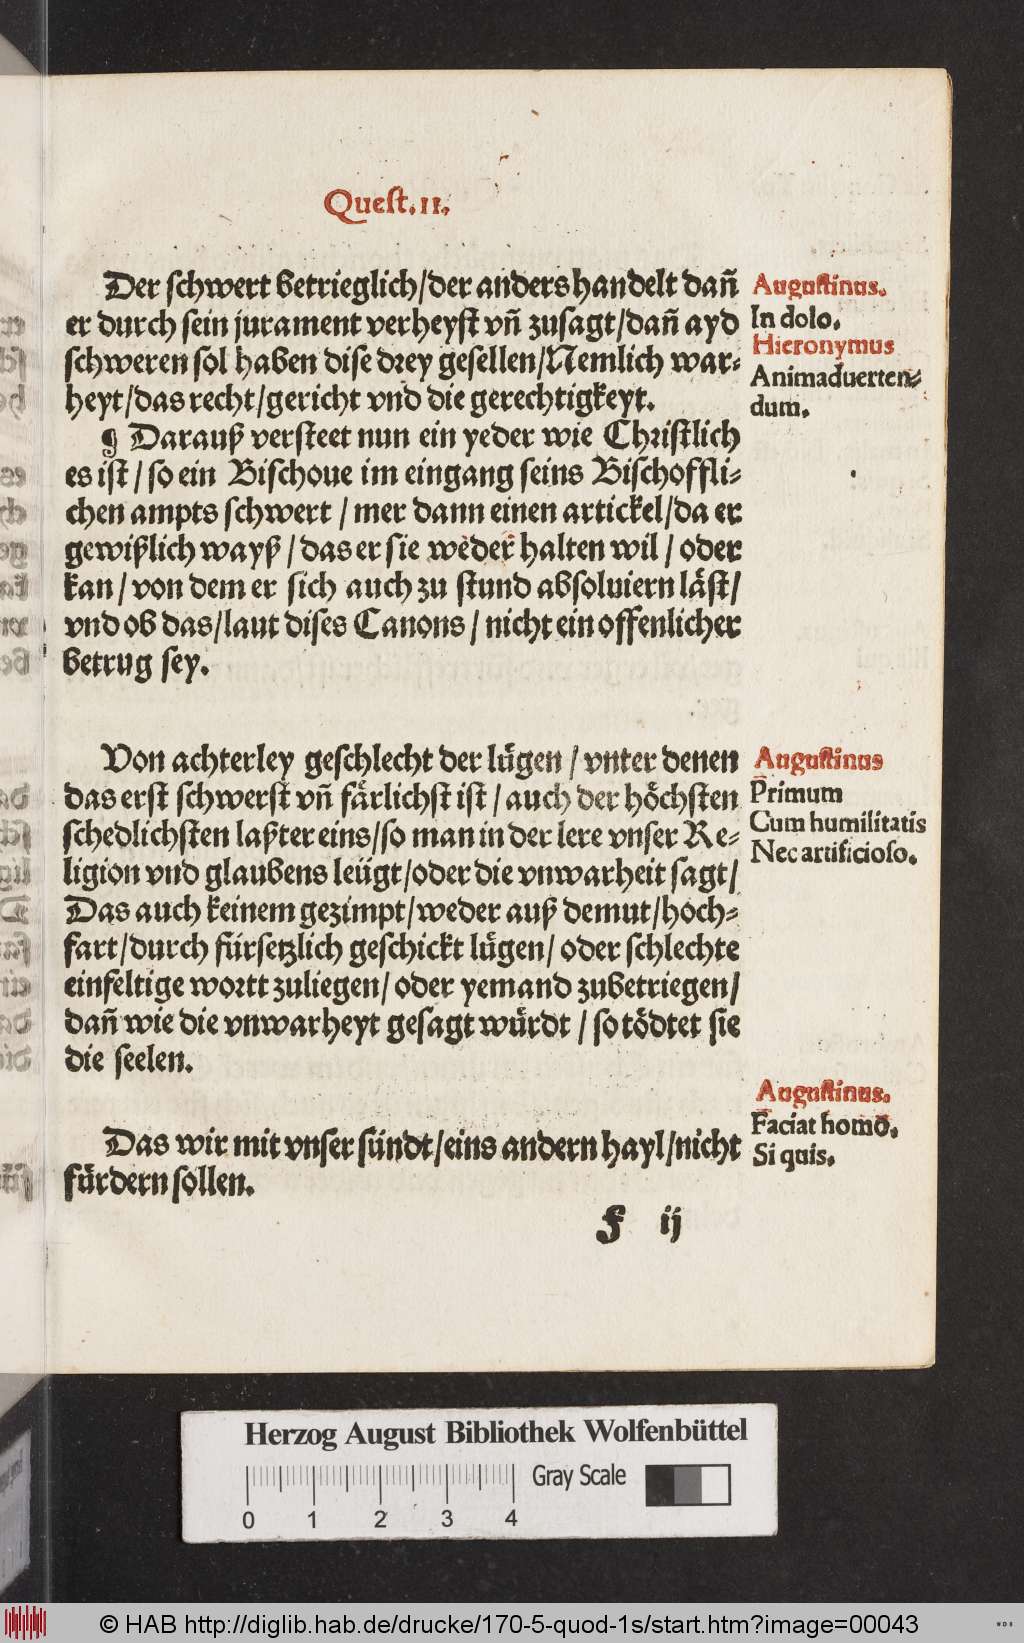 Quest. II.
Der schwert betrieglich/der anders handelt dañ
er durch sein jurament verheyst vñ zusagt/dañ ayd
schweren sol haben dise drey gesellen/Nemlich war-
heyt/das recht/gericht vnd die gerechtigkeyt.
Augustinus.
In dolo.
Hieronymus
Animaduerten-
dum.
¶ Darauß versteet nun ein yeder wie Christlich
es ist/so ein Bischoue im eingang seins Bischoffli-
chen ampts schwert/mer dann einen artickel/da er
gewißlich wayß/das er sie weder halten wil/oder
kan/von dem er sich auch zu stund absoluiern läst/
vnd ob das/laut dises Canons/nicht ein offenlicher
betrug sey.
Von achterley geschlecht der lügen/vnter denen
das erst schwerst vñ färlichst ist/auch der höchsten
schedlichsten laßter eins/so man in der lere vnser Re-
ligion vnd glaubens leügt/oder die vnwarheit sagt/
Das auch keinem gezimpt/weder auß demut/hoch-
fart/durch fürsetzlich geschickt lügen/oder schlechte
einfeltige wortt zuliegen/oder yemand zubetriegen/
dañ wie die vnwarheyt gesagt würdt/so tödtet sie
die seelen.
Augustinus
Primum
Cum humilitatis
Nec artificioso.
Das wir mit vnser sündt/eins andern hayl/nicht
fürdern sollen.
Augustinus.
Faciat homo.
Si quis.
F ij
Herzog August Bibliothek Wolfenbüttel
Gray Scale
0 1 2 3 4
© HAB http://diglib.hab.de/drucke/170-5-quod-1s/start.htm?image=00043